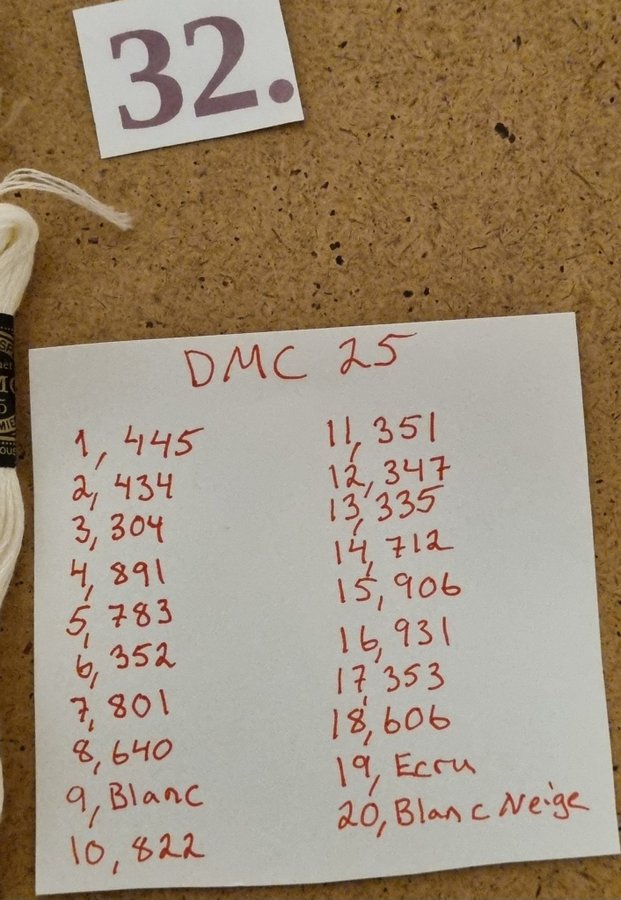 32.
DMC 25
1, 445
2, 434
3, 304
4, 891
5, 783
6, 352
7, 801
8, 640
9, Blanc
10, 822
11, 351
12, 347
13, 335
14, 712
15, 906
16, 931
17, 353
18, 606
19, Ecru
20, Blanc Neige